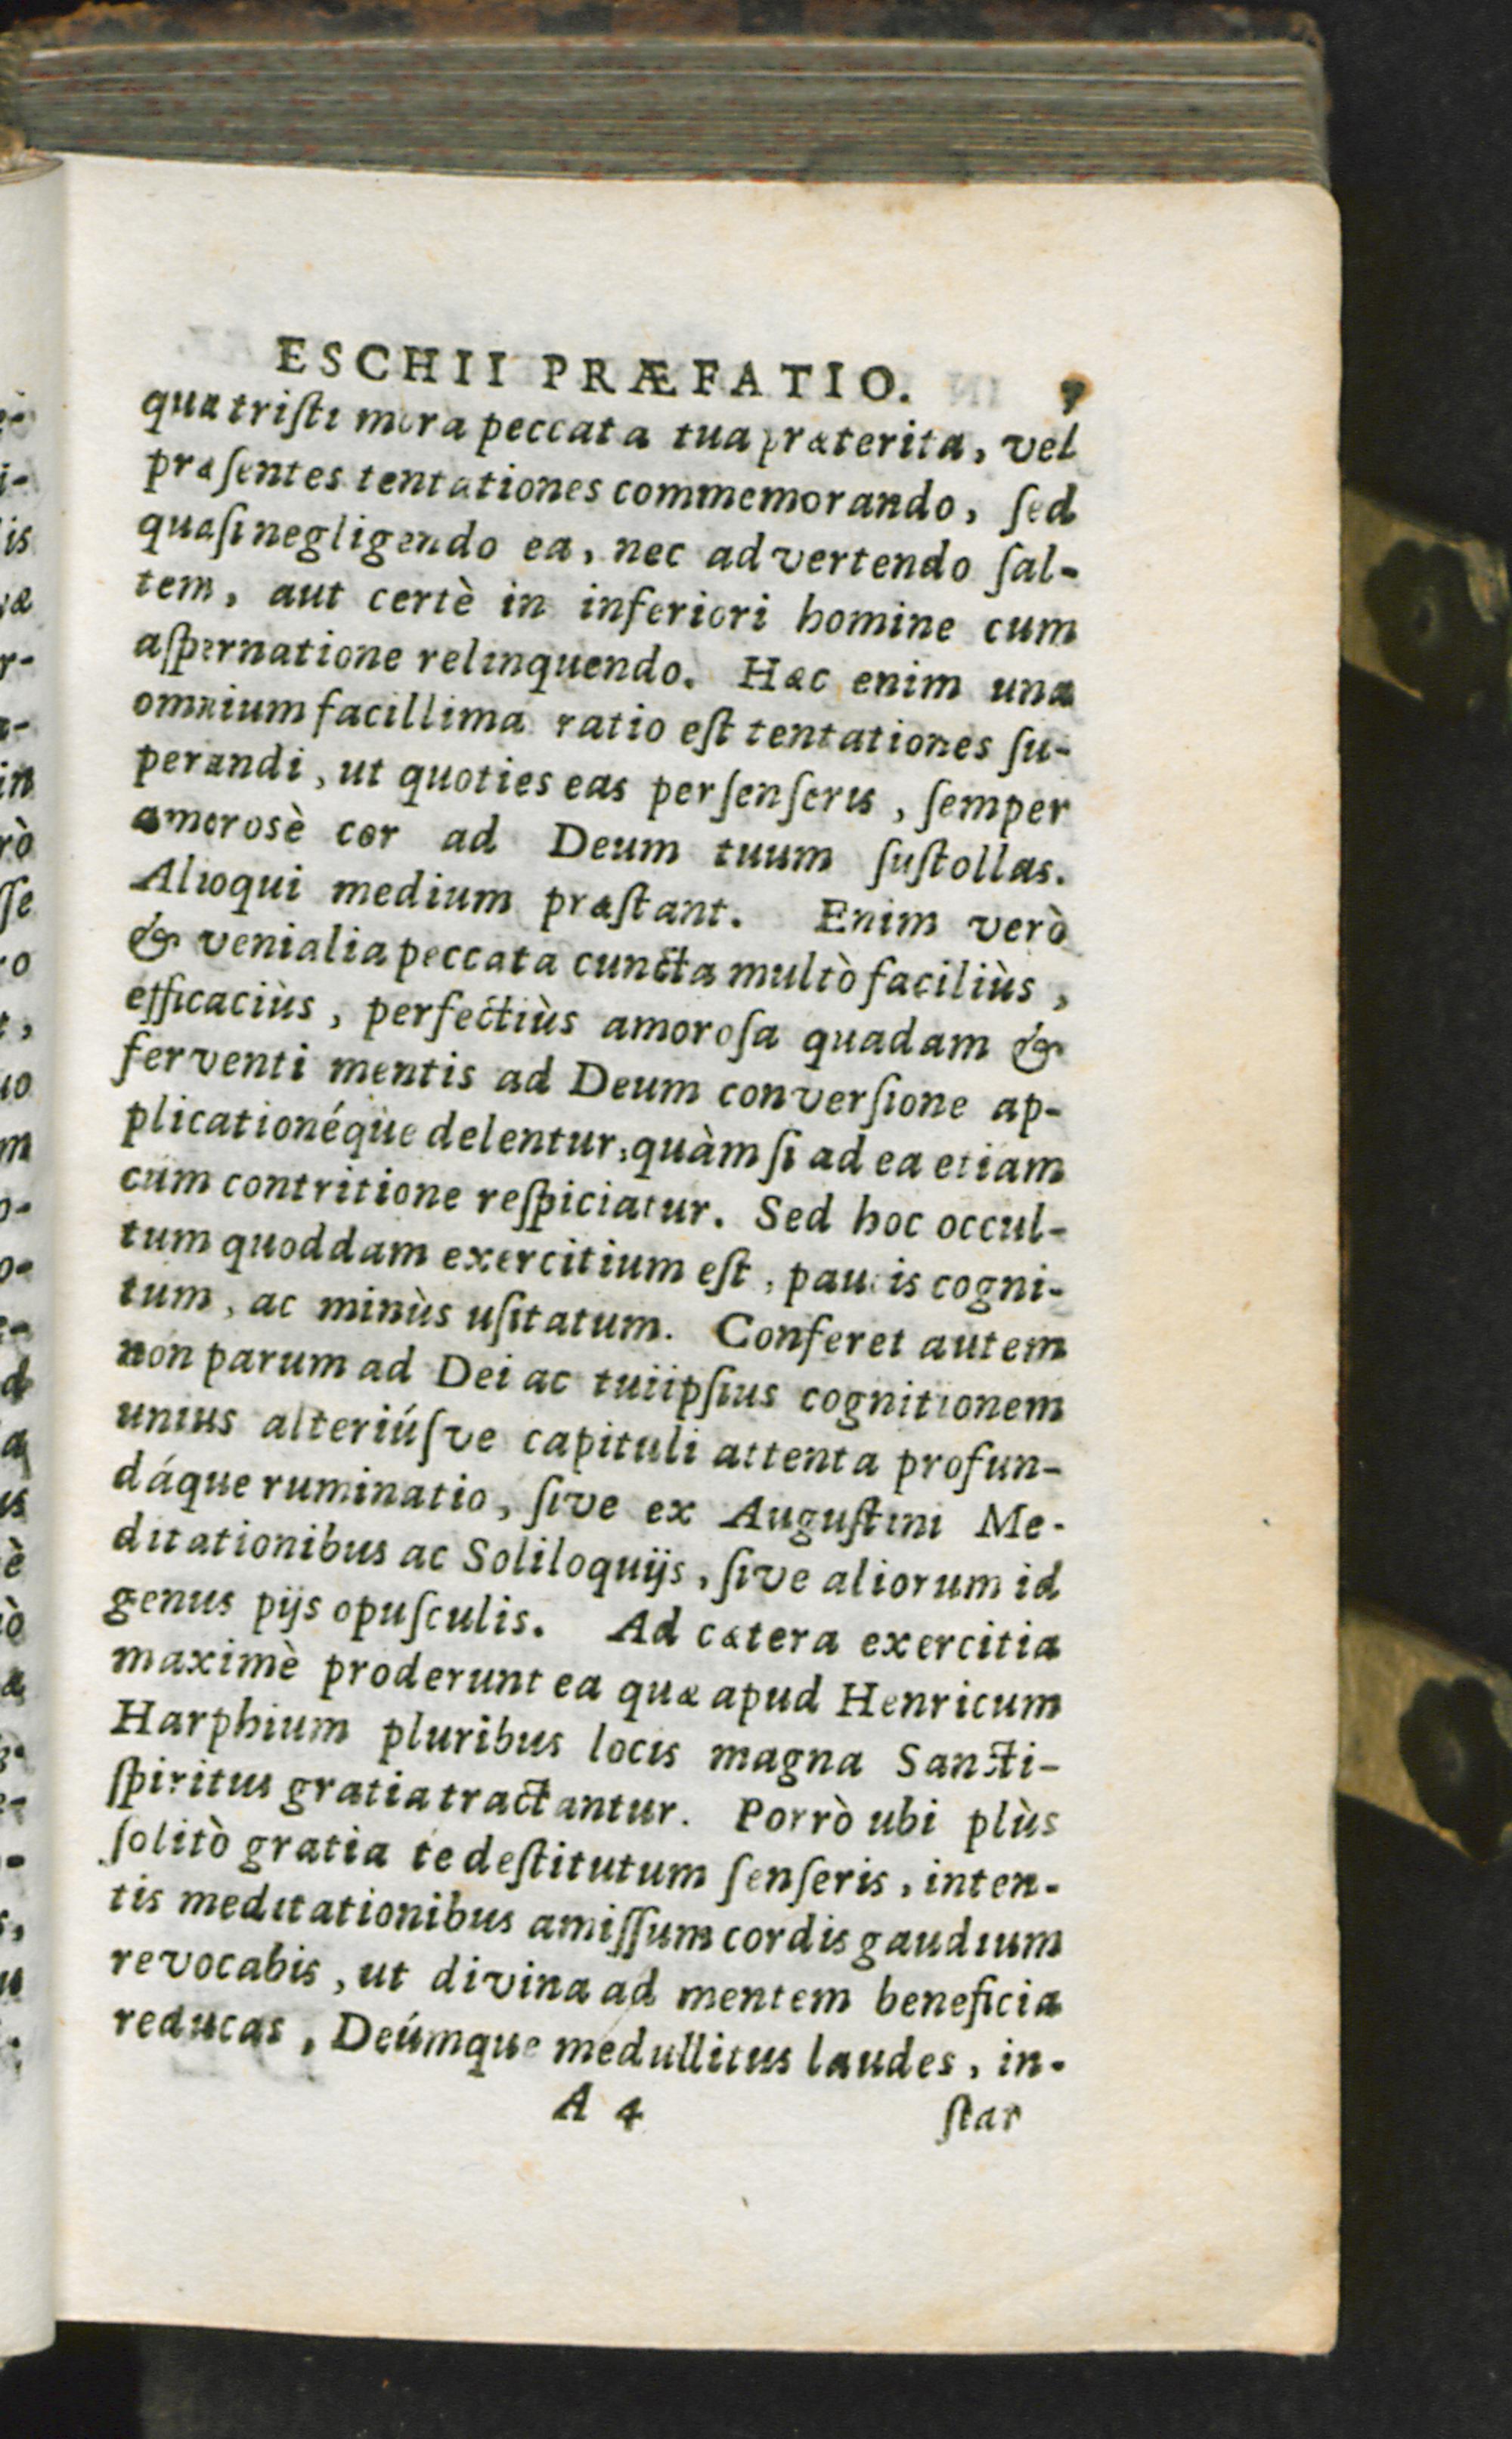 ESCHII PRÆFATIO. 7
qua triſti mora peccata tua præterita, vel
præſentes tentationes commemorando, ſed
quaſi negligendo ea, nec advertendo ſal-
tem, aut certè in inferiori homine cum
aſpernatione relinquendo. Hæc enim una
omnium facillima ratio eſt tentationes ſu-
perandi, ut quoties eas perſenſeris, ſemper
amorosè cor ad Deum tuum ſuſtollas.
Alioqui medium præſtant. Enim verò
& venialia peccata cuncta multò faciliùs,
efficaciùs, perfectiùs amoroſa quadam &
ferventi mentis ad Deum converſione ap-
plicationéque delentur, quàm ſi ad ea etiam
cum contritione reſpiciatur. Sed hoc occul-
tum quoddam exercitium eſt, paucis cogni-
tum, ac minùs uſitatum. Conferet autem
non parum ad Dei ac tuiipſius cognitionem
unius alteriúſve capituli attenta profun-
dáque ruminatio, ſive ex Auguſtini Me-
ditationibus ac Soliloquijs, ſive aliorum id
genus pijs opuſculis. Ad cætera exercitia
maximè proderunt ea quæ apud Henricum
Harphium pluribus locis magna Sancti-
ſpiritus gratia tractantur. Porrò ubi plùs
ſolitò gratia te deſtitutum ſenſeris, inten-
tis meditationibus amiſſum cordis gaudium
revocabis, ut divina ad mentem beneficia
reducas, Deúmque medullitus laudes, in-
A 4 ſtar